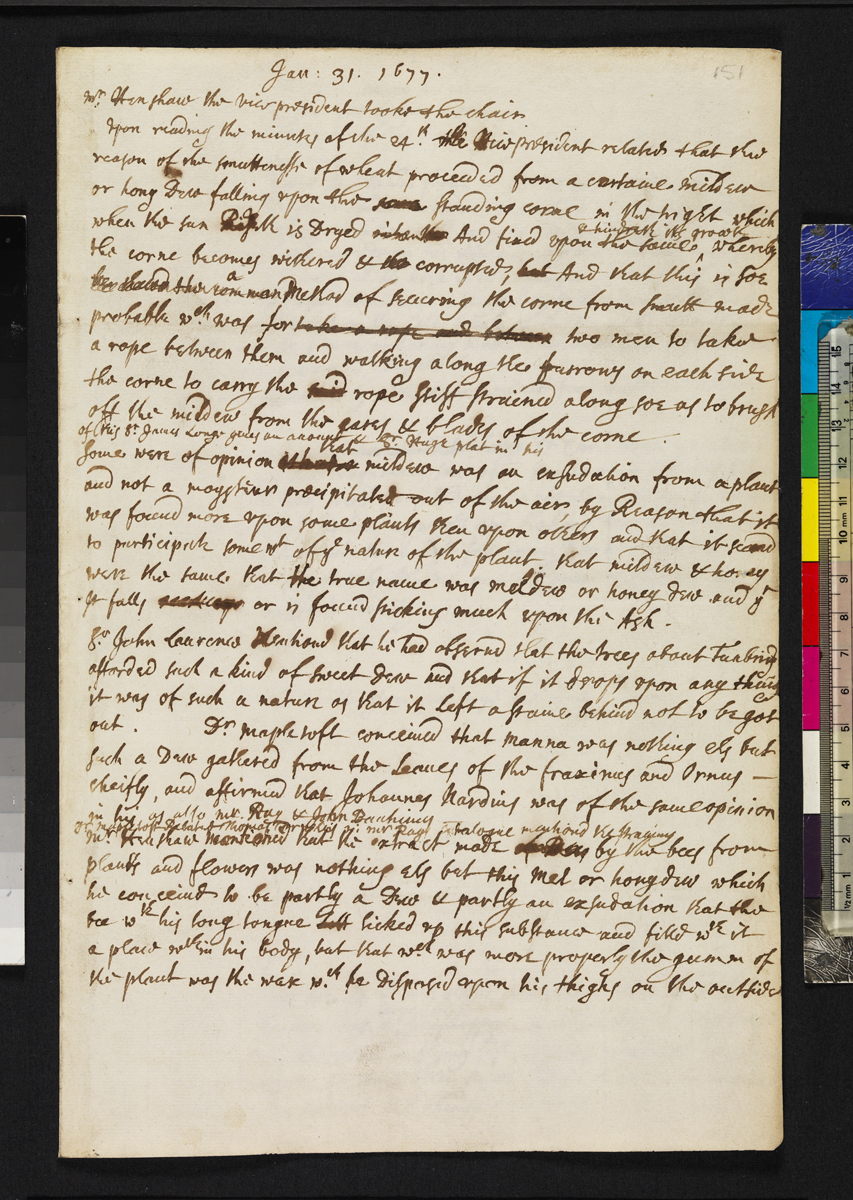 151
Jan: 31. 1677.
mr. Henshaw the vice president tooke the chair
Vpon reading the minutes of the 24th. the Vice president related that the
reason of the smuttinesse of wheat proceeded from a certaine mildew
or hony Dew falling vpon the standing corne in the night which
& hindreth its growth
when the sun Riseth is Dryed And fixed vpon the same whereby
the corne becomes withered & the corrupted, but And that this is soe
the common Method of securing the corne from smutt made
probable wch was for take a rope and between two men to take
a rope between them and walking along the furrows on each side
the corne to carry the said rope stiff strained along soe as to brush
off the mildew from the eares & blades of the corne.
of this Sr. James Long gives an account & Sr. Hugh plat in his
Some were of opinion that mildew was an exsudation from a plant
and not a moysture precipitated out of the air, by Reason that it
was found more vpon some plants then vpon others and that it seemd
to participate somewt of ye nature of the plant. that mildew & honey
were the same that the true name was meldew or honey dew and yt
It falls or is found sticking much vpon the Ash.
Sr. John Laurence Mentiond that he had observd that the trees about Tunbridg
afforded such a kind of sweet dew and that if it drops vpon any thing
it was of such a nature as that it left a staine behind not to be got
out. Dr. maplesoft conceived that manna was nothing els but
such a Dew gathered from the Leaues of the fraxinus and Ornus —
cheifly, and affirmed that Johannes Nardius was of the same opinion
in his, as also mr. Ray & John Bauhinus
mr. Ray catalogue mentiond
mr. Henshaw mentioned that the extract made by the bees from
plants and flowers was nothing els but this Mel or honydew which
he conceiud to be partly a Dew & partly an exsudation that the
bee wth his long tongue licked vp this substance and filld wth it
a place wthin his body, but that wch was more properly the gummn of
the plant was the wax wch he Disposed vpon his thighs on the outside